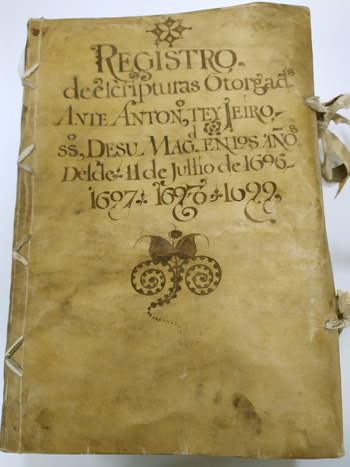 REGISTRO,
de escripturas Otorgad.s
ANTE ANTON.o TEYJEIRO,
ss.o, DESU MAG.d EN lOS AÑO.s
Desde 11 de Julho de 1696
1697 1698 1699